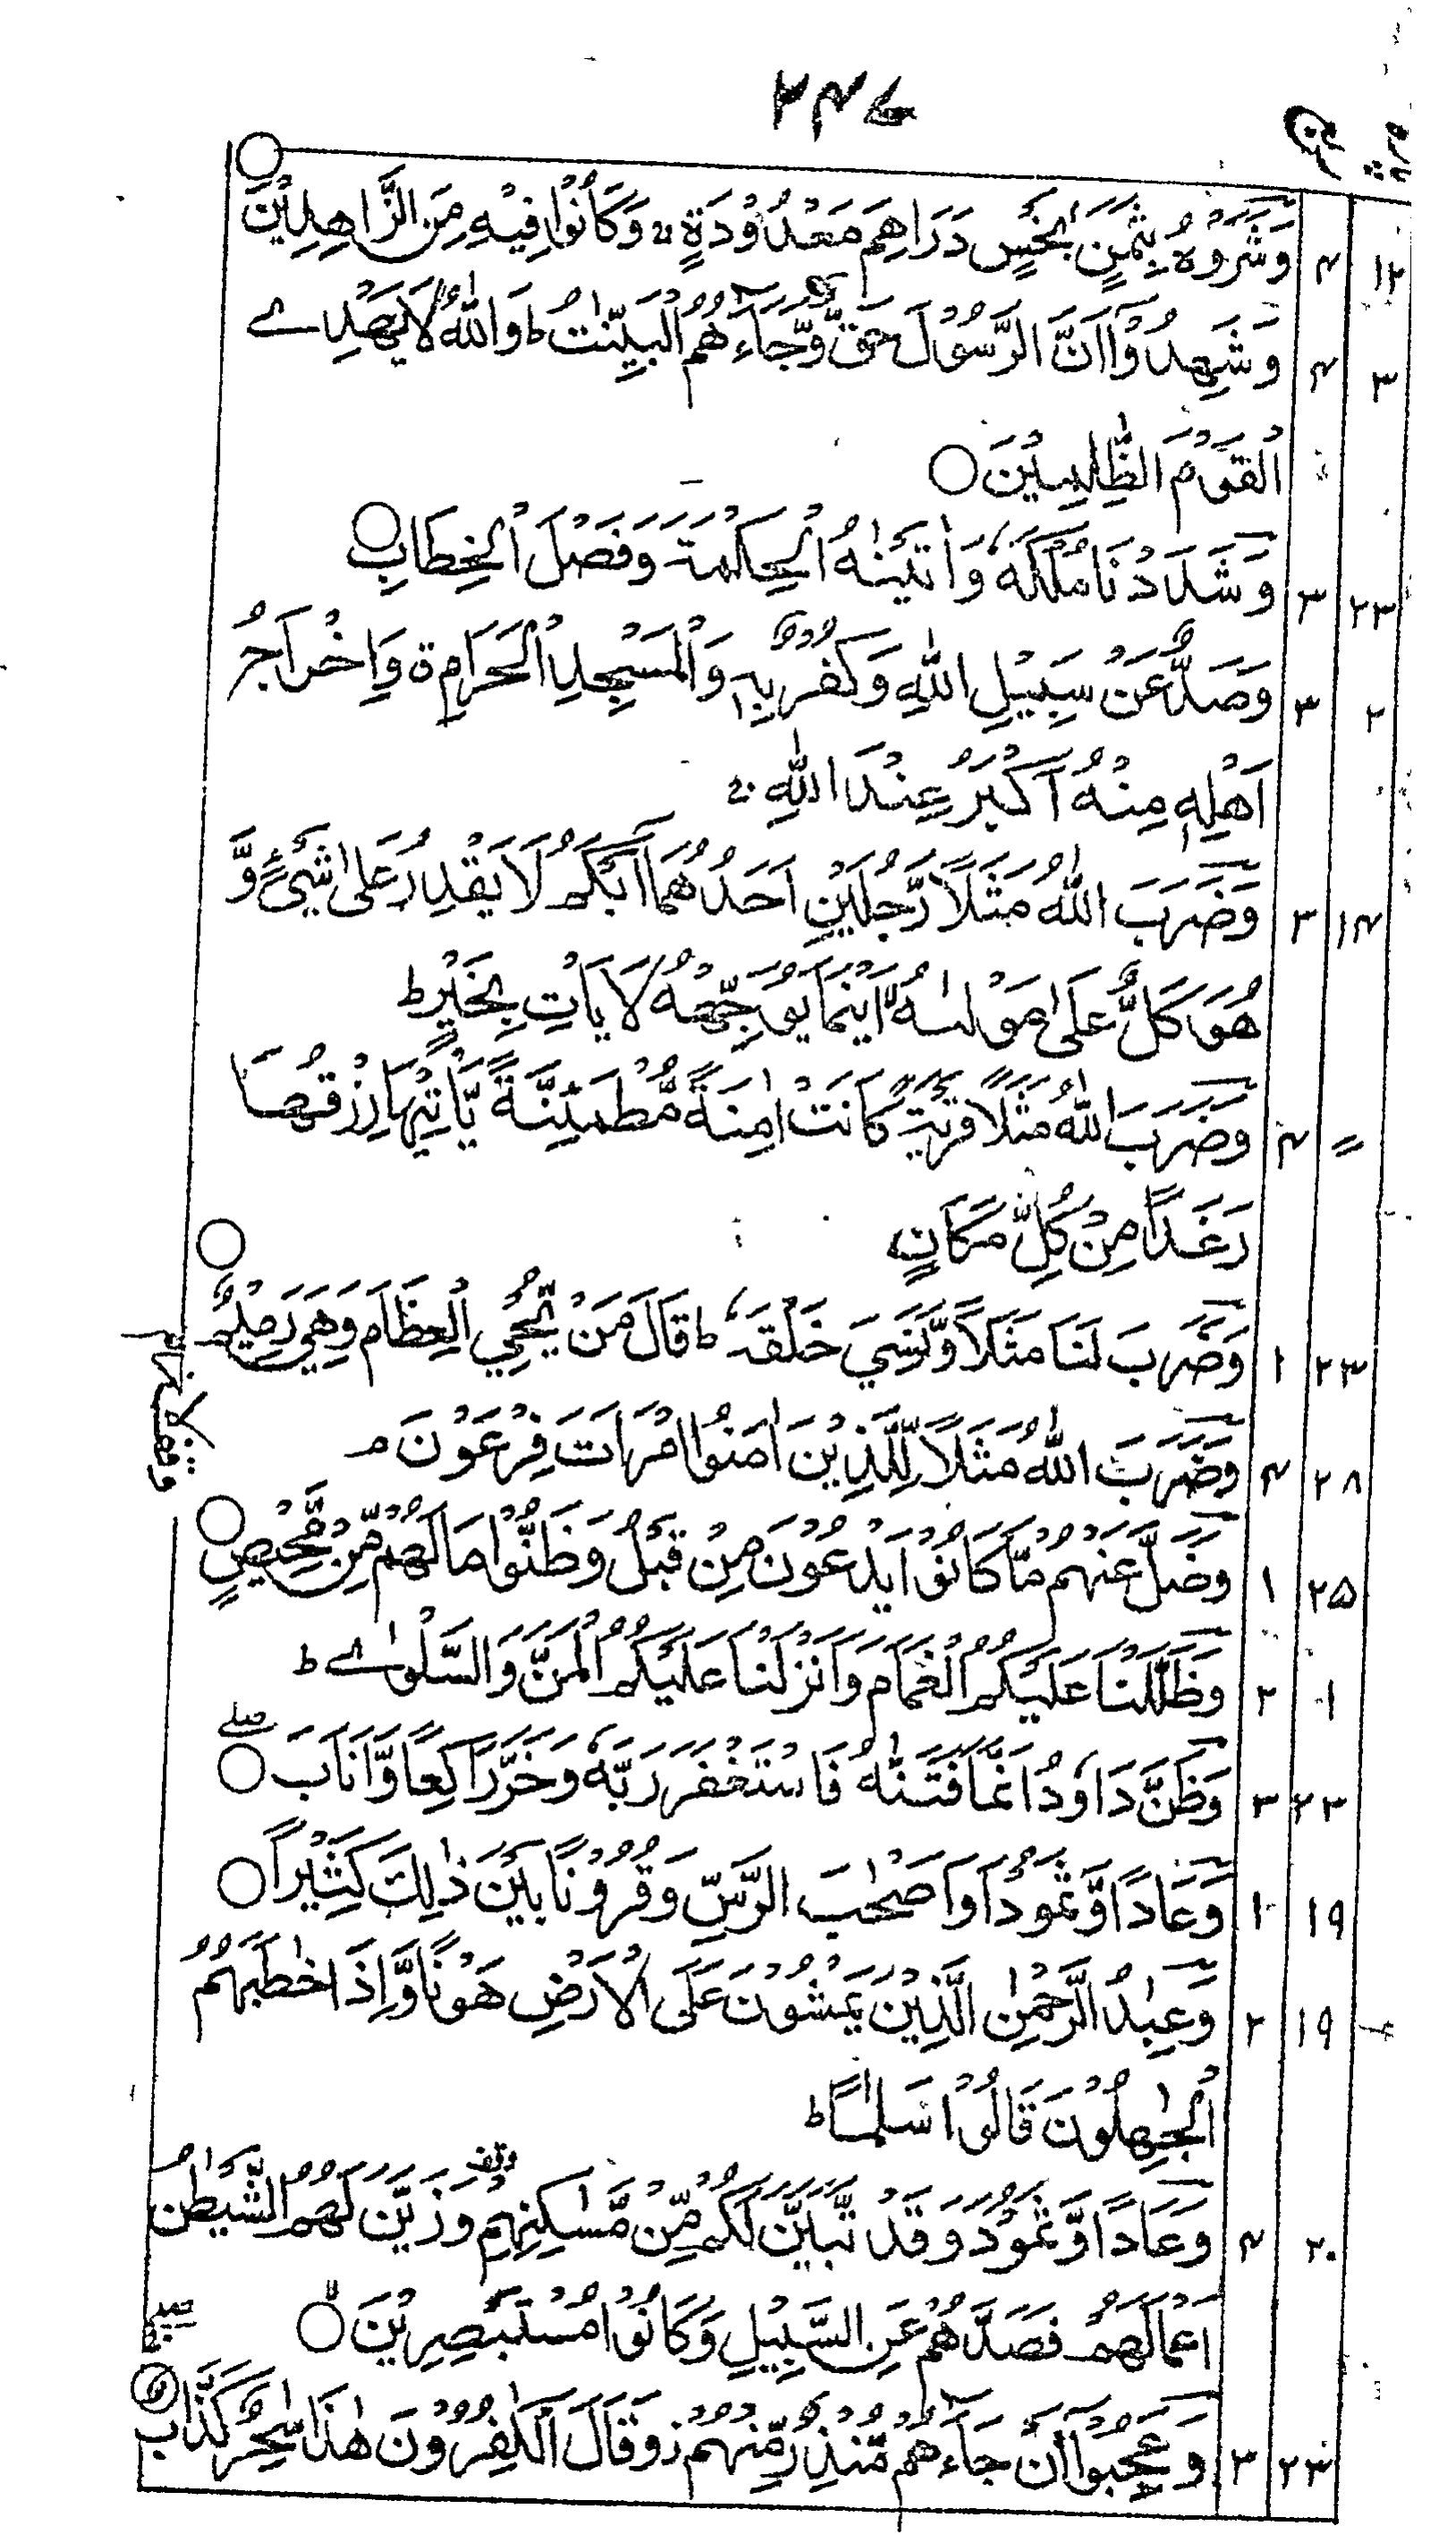 ۲۴۷
پارہ ربع
۱۲ ۴ وَشَرَوْهُ بِثَمَنٍۭ بَخْسٍ دَرَاهِمَ مَعْدُوْدَةٍ ۚ وَكَانُوْا فِيْهِ مِنَ الزَّاهِدِيْنَ ○
۳ ۴ وَشَهِدُوْۤا اَنَّ الرَّسُوْلَ حَقٌّ وَّجَآءَهُمُ الْبَيِّنٰتُ ؕ وَاللّٰهُ لَا يَهْدِے
الْقَوْمَ الظّٰلِمِيْنَ ○
۲۳ ۳ وَشَدَدْنَا مُلْكَهٗ وَاٰتَيْنٰهُ الْحِكْمَةَ وَفَصْلَ الْخِطَابِ ○
۲ ۳ وَصَدٌّ عَنْ سَبِيْلِ اللّٰهِ وَكُفْرٌۢ بِهٖ وَالْمَسْجِدِ الْحَرَامِ ق وَاِخْرَاجُ
اَهْلِهٖ مِنْهُ اَكْبَرُ عِنْدَ اللّٰهِ ۚ
۱۴ ۳ وَضَرَبَ اللّٰهُ مَثَلًا رَّجُلَيْنِ اَحَدُهُمَاۤ اَبْكَمُ لَا يَقْدِرُ عَلٰى شَيْءٍ وَّ
هُوَ كَلٌّ عَلٰى مَوْلٰىهُ ۙ اَيْنَمَا يُوَجِّهْهُ لَا يَاْتِ بِخَيْرٍ ؕ
〃 ۴ وَضَرَبَ اللّٰهُ مَثَلًا قَرْيَةً كَانَتْ اٰمِنَةً مُّطْمَئِنَّةً يَّاْتِيْهَا رِزْقُهَا
رَغَدًا مِّنْ كُلِّ مَكَانٍ
۲۳ ۱ وَضَرَبَ لَنَا مَثَلًا وَّنَسِيَ خَلْقَهٗ ؕ قَالَ مَنْ يُّحْيِ الْعِظَامَ وَهِيَ رَمِيْمٌ ○
۲۸ ۴ وَضَرَبَ اللّٰهُ مَثَلًا لِّلَّذِيْنَ اٰمَنُوا امْرَاَتَ فِرْعَوْنَ م
۲۵ ۱ وَضَلَّ عَنْهُمْ مَّا كَانُوْا يَدْعُوْنَ مِنْ قَبْلُ وَظَنُّوْا مَا لَهُمْ مِّنْ مَّحِيْصٍ ○
۱ ۲ وَظَلَّلْنَا عَلَيْكُمُ الْغَمَامَ وَاَنْزَلْنَا عَلَيْكُمُ الْمَنَّ وَالسَّلْوٰے ؕ
۲۳ ۳ وَظَنَّ دَاوٗدُ اَنَّمَا فَتَنّٰهُ فَاسْتَغْفَرَ رَبَّهٗ وَخَرَّ رَاكِعًا وَّاَنَابَ ○
۱۹ ۱ وَعَادًا وَّثَمُوْدَا۟ وَاَصْحٰبَ الرَّسِّ وَقُرُوْنًۢا بَيْنَ ذٰلِكَ كَثِيْرًا ○
۱۹ ۲ وَعِبَادُ الرَّحْمٰنِ الَّذِيْنَ يَمْشُوْنَ عَلَى الْاَرْضِ هَوْنًا وَّاِذَا خَاطَبَهُمُ
الْجٰهِلُوْنَ قَالُوْا سَلٰمًا ؕ
۲۰ ۴ وَعَادًا وَّثَمُوْدَ وَقَدْ تَّبَيَّنَ لَكُمْ مِّنْ مَّسٰكِنِهِمْ وقف وَزَيَّنَ لَهُمُ الشَّيْطٰنُ
اَعْمَالَهُمْ فَصَدَّهُمْ عَنِ السَّبِيْلِ وَكَانُوْا مُسْتَبْصِرِيْنَ ○
۲۳ ۳ وَعَجِبُوْۤا اَنْ جَآءَهُمْ مُّنْذِرٌ مِّنْهُمْ ز وَقَالَ الْكٰفِرُوْنَ هٰذَا سٰحِرٌ كَذَّابٌ